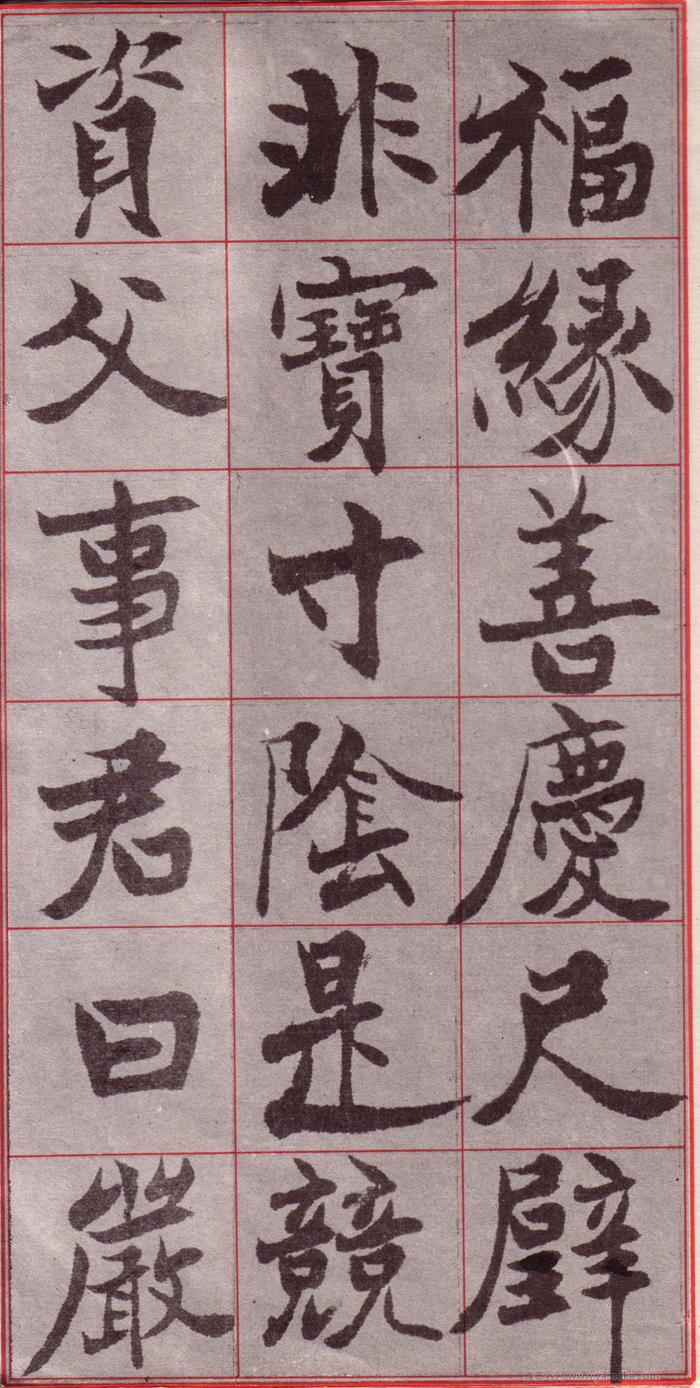 福緣善慶尺璧
非寶寸陰是競
資父事君曰嚴